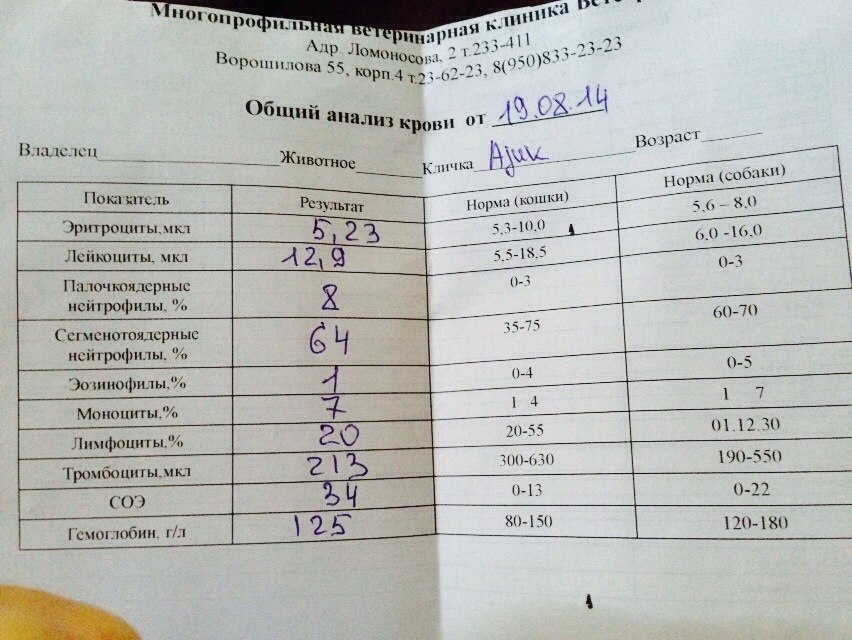 Многопрофильная ветеринарная клиника
Адр. Ломоносова, 2 т.233-411
Ворошилова 55, корп.4 т.23-62-23, 8(950)833-23-23
Общий анализ крови от 19.08.14
Владелец Животное Кличка Ајик Возраст
Показатель Результат Норма (кошки) Норма (собаки)
Эритроциты,мкл 5,23 5,3-10,0 5,6 – 8,0
Лейкоциты, мкл 12,9 5,5-18,5 6,0 -16,0
Палочкоядерные нейтрофилы, % 8 0-3 0-3
Сегменотоядерные нейтрофилы, % 64 35-75 60-70
Эозинофилы,% 1 0-4 0-5
Моноциты,% 7 1 4 1 7
Лимфоциты,% 20 20-55 01.12.30
Тромбоциты,мкл 213 300-630 190-550
СОЭ 34 0-13 0-22
Гемоглобин, г/л 125 80-150 120-180